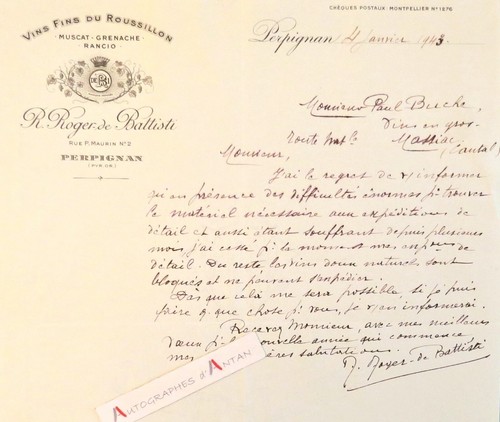 VINS FINS DU ROUSSILLON
MUSCAT - GRENACHE
RANCIO
R. Roger de Battisti
RUE P. MAURIN N°2
PERPIGNAN
(PYR. OR.)
CHÈQUES POSTAUX: MONTPELLIER N° 1876
Perpignan 4 Janvier 1943
Monsieur Paul
Vins en gros
route
Massiac
(Cantal)
Monsieur,
J'ai le regret de v/ informer
qu'en présence des difficultés énormes p/ trouver
le matériel nécessaire aux expéditions de
détail et aussi étant souffrant depuis plusieurs
mois, j'ai cessé p/ le moment mes
détail. Du reste les vins doux naturels sont
bloqués et ne peuvent s'expédier.
Dès que celà me sera possible, si je puis
faire q. que chose p/ vous, je v/ en informerai.
Recevez Monsieur, avec mes meilleurs
vœux p/ la nouvelle année qui commence,
mes salutations.
R. Roger de Battisti
AUTOGRAPHES d'ANTAN